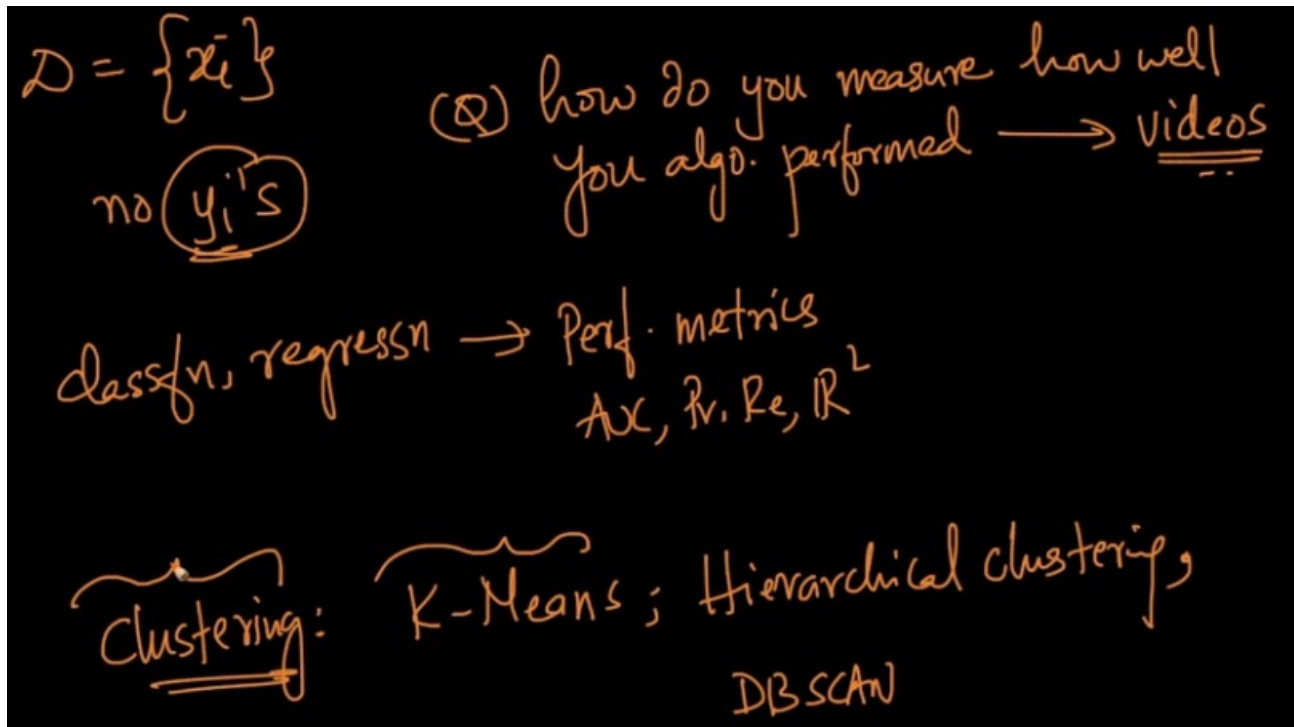 D = {xi}
(Q) how do you measure how well
you algo. performed → videos
no yi's
classfn, regressn → Perf. metrics
AUC, Pr. Re, R²
Clustering: K-Means; Hierarchical clustering,
DBSCAN